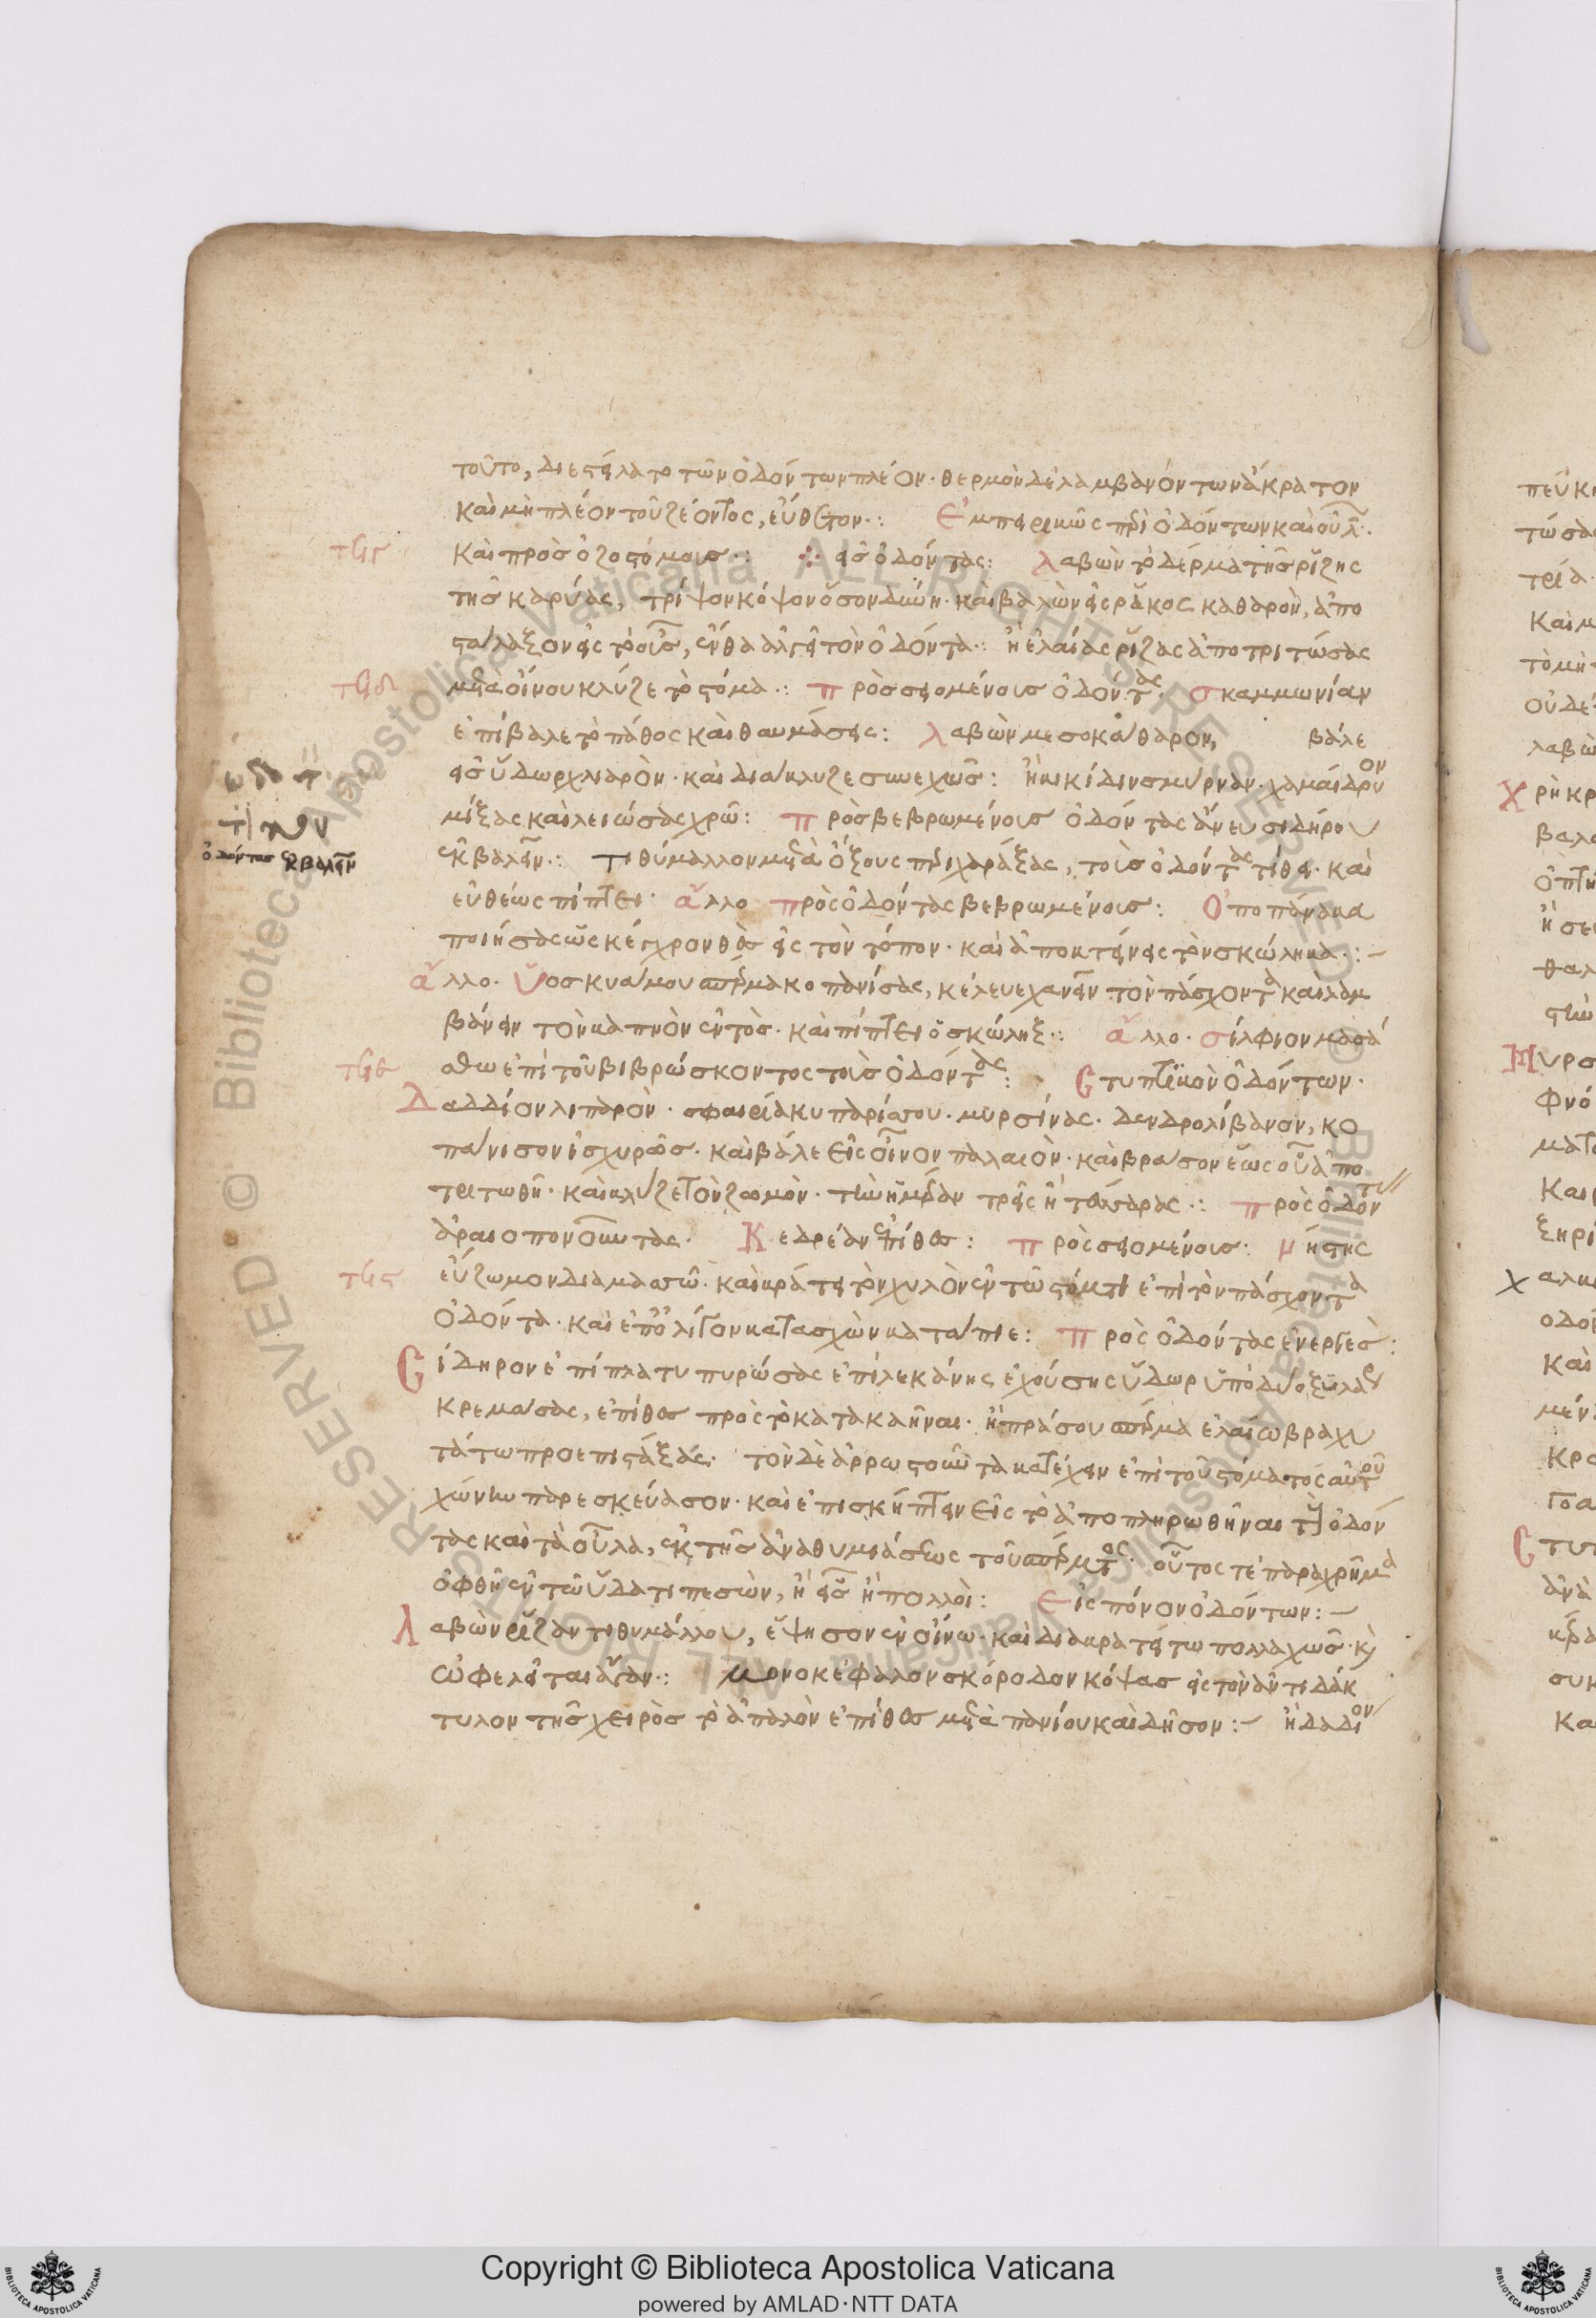 τοῦτο, διεστείλατο τῶν ὀδόντων πλέον· θερμὸν δὲ λαμβανόντων ἄκρατον
καὶ μὴ πλέον τοῦ ζέοντος, εὔθετον·: Ἐμπειρικῶς περὶ ὀδόντων καὶ οὔλ·
καὶ πρὸς ὀζοστόμοις·: εἰς ὀδόντας: λαβὼν τὸ δέρμα τῆς ρίζης
τῆς καρύας, τρίψον κόψον ὅσον δύνῃ· καὶ βαλὼν εἰς ράκος καθαρὸν, ἀπο
στάλαξον εἰς τὸ οὖς, ἔνθα ἀλγεῖ τὸν ὀδόντα·: ἢ ἐλαίας ρίζας ἀποτριτώσας
μετὰ οἴνου κλύζε τὸ στόμα·: πρὸς σειομένοις ὀδόντας· σκαμμωνίαν
ἐπίβαλε τὸ πάθος καὶ θαυμάσεις: λαβὼν μεσοκάθαρον, βάλε
εἰς ὕδωρ χλιαρὸν· καὶ διάκλυζε συνεχῶς: ἢ κικίδιν σμύρναν· χαμαίδρυον
μίξας καὶ λειώσας χρῶ: πρὸς βεβρωμένοις ὀδόντας ἄνευ σιδήρου
ἐκβαλεῖν·: τιθύμαλλον μετὰ ὄξους περιχαράξας, τοῖς ὀδόντας τίθει· καὶ
εὐθέως πίπτει· ἄλλο πρὸς ὀδόντας βεβρωμένοις: Ὀποπάνακα
ποιήσας ὡς κέγχρον θὲς εἰς τὸν τόπον· καὶ ἀποκτείνεις τὸν σκώληκα·:
ἄλλο· ὑοσκυάμου σπέρμα κοπανίσας, κέλευε χανεῖν τὸν πάσχοντα καὶ λαμ
βάνειν τὸν καπνὸν ἐντὸς· καὶ πίπτει ὁ σκώληξ·: ἄλλο· σίλφιον μασά
σθω ἐπὶ τοῦ βιβρώσκοντος τοῖς ὀδόντας: Στυπτικὸν ὀδόντων·
Δαδδίον λιπαρὸν· σφαιρία κυπαρίσσου· μυρσίνας· δενδρολίβανον, κο
πάνισον ἰσχυρῶς· καὶ βάλε εἰς οἶνον παλαιὸν· καὶ βράσον ἕως οὗ ἀπο
τριτωθῇ· καὶ κλύζε τὸν ζωμὸν· τὴν ἡμέραν τρεῖς ἢ τέσσαρας·: πρὸς ὀδόν
ἄραισ πονοῦντας· Κεδρέαν ἐπίθες: πρὸς σειομένοις: νήστης
εὔζωμον διαμασῶ· καὶ κράτει τὸν χυλὸν ἐν τῷ στόματι ἐπὶ τὸν πάσχοντα
ὀδόντα· καὶ ἐπ' ὀλίγον κατασχὼν κατάπιε: πρὸς ὀδόντας ἐνεργὲς:
Σίδηρον ἐπίπλατυ πυρώσας ἐπὶ λεκάνης ἐχούσης ὕδωρ ὑπὸ δύο ξύλων
κρεμάσας, ἐπίθες πρὸς τὸ κατακαῆναι· ἢ πράσου σπέρμα ἐλαίῳ βραχυ
τάτω προεπιστάξας· τὸν δὲ ἀρρωστοῦντα κατέχειν ἐπὶ τοῦ στόματος αὐτοῦ
χώνην παρεσκεύασον· καὶ ἐπισκήπτειν εἰς τὸ ἀποπληρωθῆναι τοὺς ὀδόν
τας καὶ τὰ οὖλα, ἐκ τῆς ἀναθυμιάσεως τοῦ σπέρματος· οὗτος τε παραχρῆμα
ὀφθῇ ἐν τῷ ὕδατι πεσὼν, ἢ εἷς ἢ πολλοὶ: Εἰς πόνον ὀδόντων:
Λαβὼν ρίζαν τιθυμάλλου, ἕψησον ἐν οἴνῳ· καὶ διακρατείτω πολλαχῶς· καὶ
ὠφελεῖται λίαν·: Μονοκέφαλον σκόροδον κόψας εἰς τὸν ἀντιδάκ
τυλον τῆς χειρὸς τὸ ἁπαλὸν ἐπίθες μετὰ πανίου καὶ δῆσον: ἢ δαδίον
ὀδόντας ἐκβαλεῖν
Copyright © Biblioteca Apostolica Vaticana
powered by AMLAD·NTT DATA